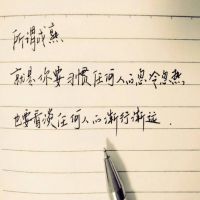 所谓成熟
就是你要习惯任何人的忽冷忽热
也要看淡任何人的渐行渐远.